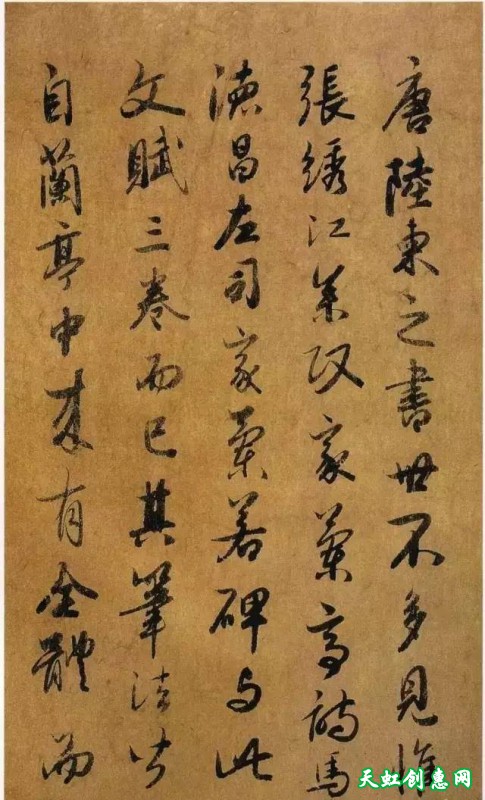 唐陸柬之書世不多見惟
張綉江參政家蘭亭詩馬
德昌左司家蘭若碑与此
文賦三卷而已其筆法皆
自蘭亭中来有全體而
天虹创惠网